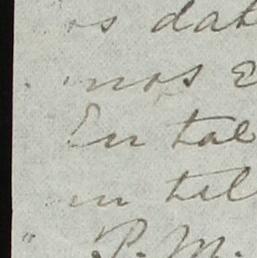 os dat
mos e
En tal
in tel
" P. M.